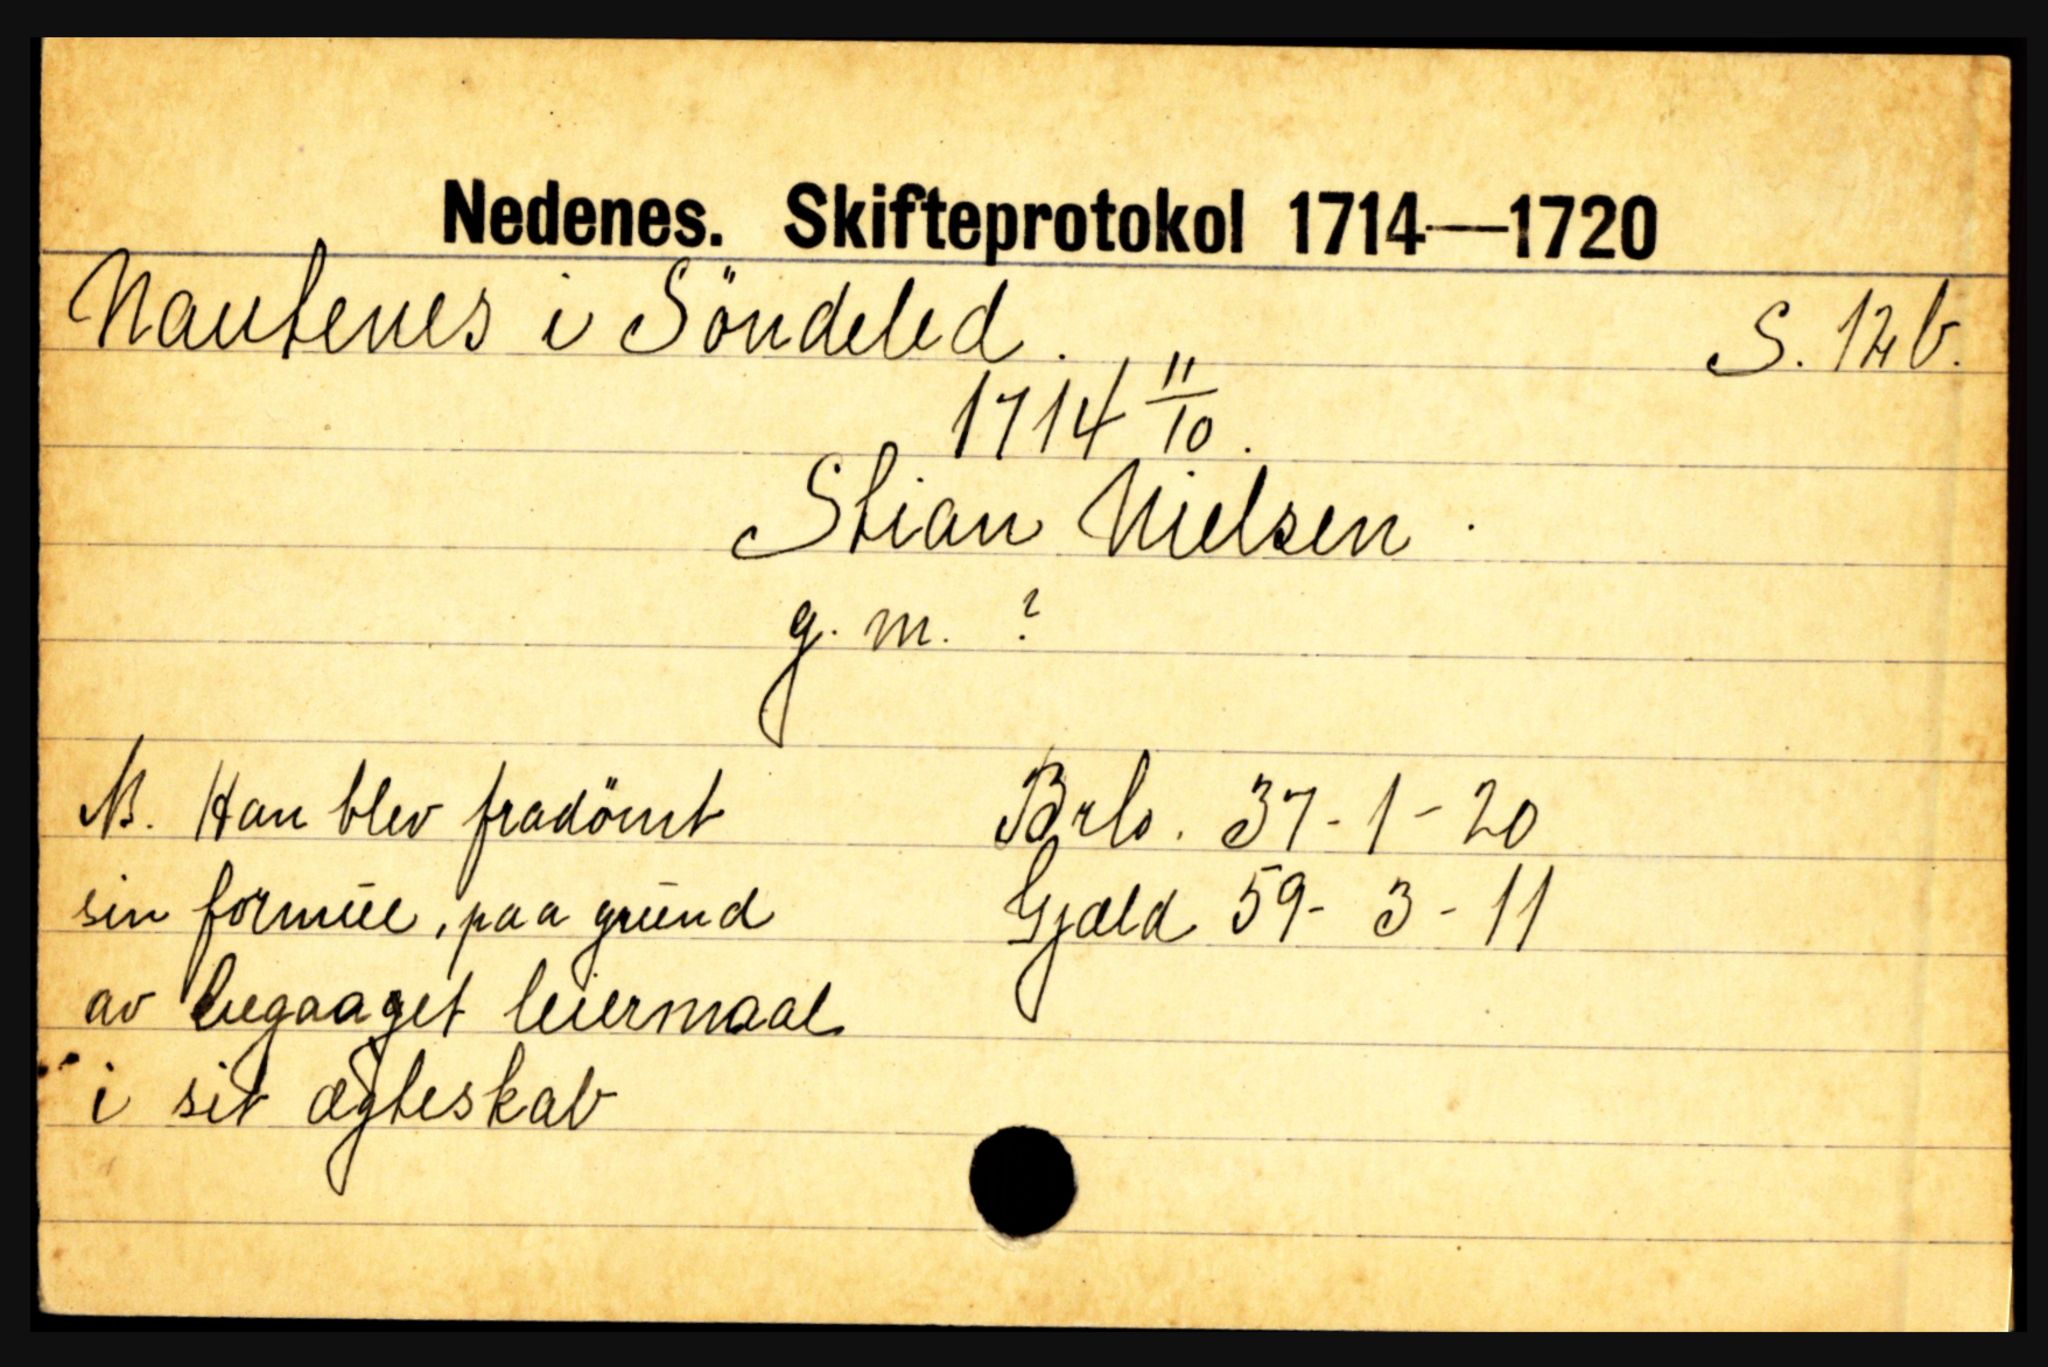 Nedenes. Skifteprotokol 1714—1720
Nautenes i Söndeled. S. 12b.
1714 11/10.
Stian Nielsen.
g. m. ?
NB. Han blev fradömt
sin formue, paa grund
av begaaget leiermaal
i sit ægteskab
Brlo. 37-1-20
Gjæld 59-3-11